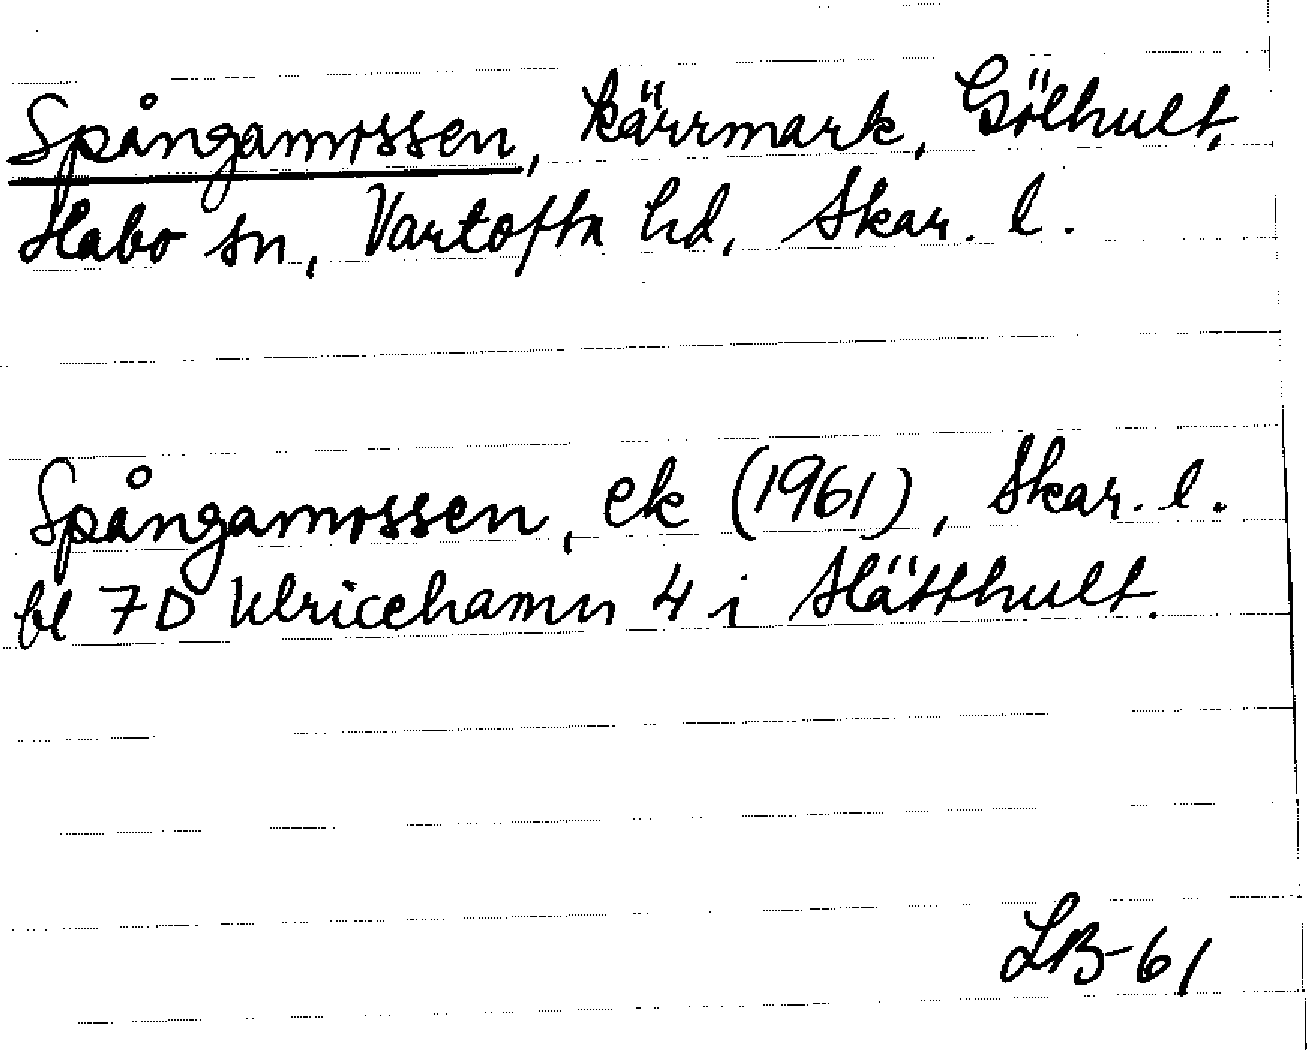 Spångamossen, kärrmark, Gölhult,
Habo sn, Vartofta hd, Skar. l.
Spångamossen, ek (1961), Skar. l.
bl 7D Ulricehamn 4 i Slätthult.
LB-61